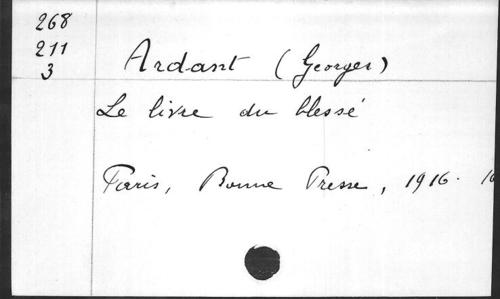 268
211
3
Ardant (Georges)
Le livre du blessé
Paris, Bonne Presse, 1916. 16